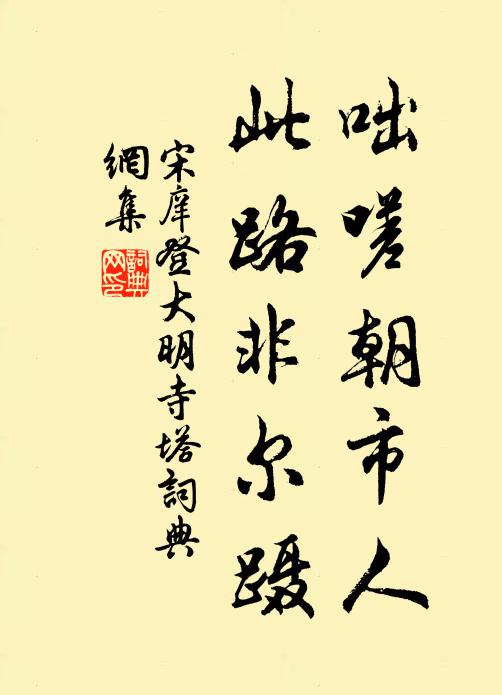 咄嗟朝市人
此路非尔蹑
宋庠登大明寺塔詞典
網集
詞典
网印